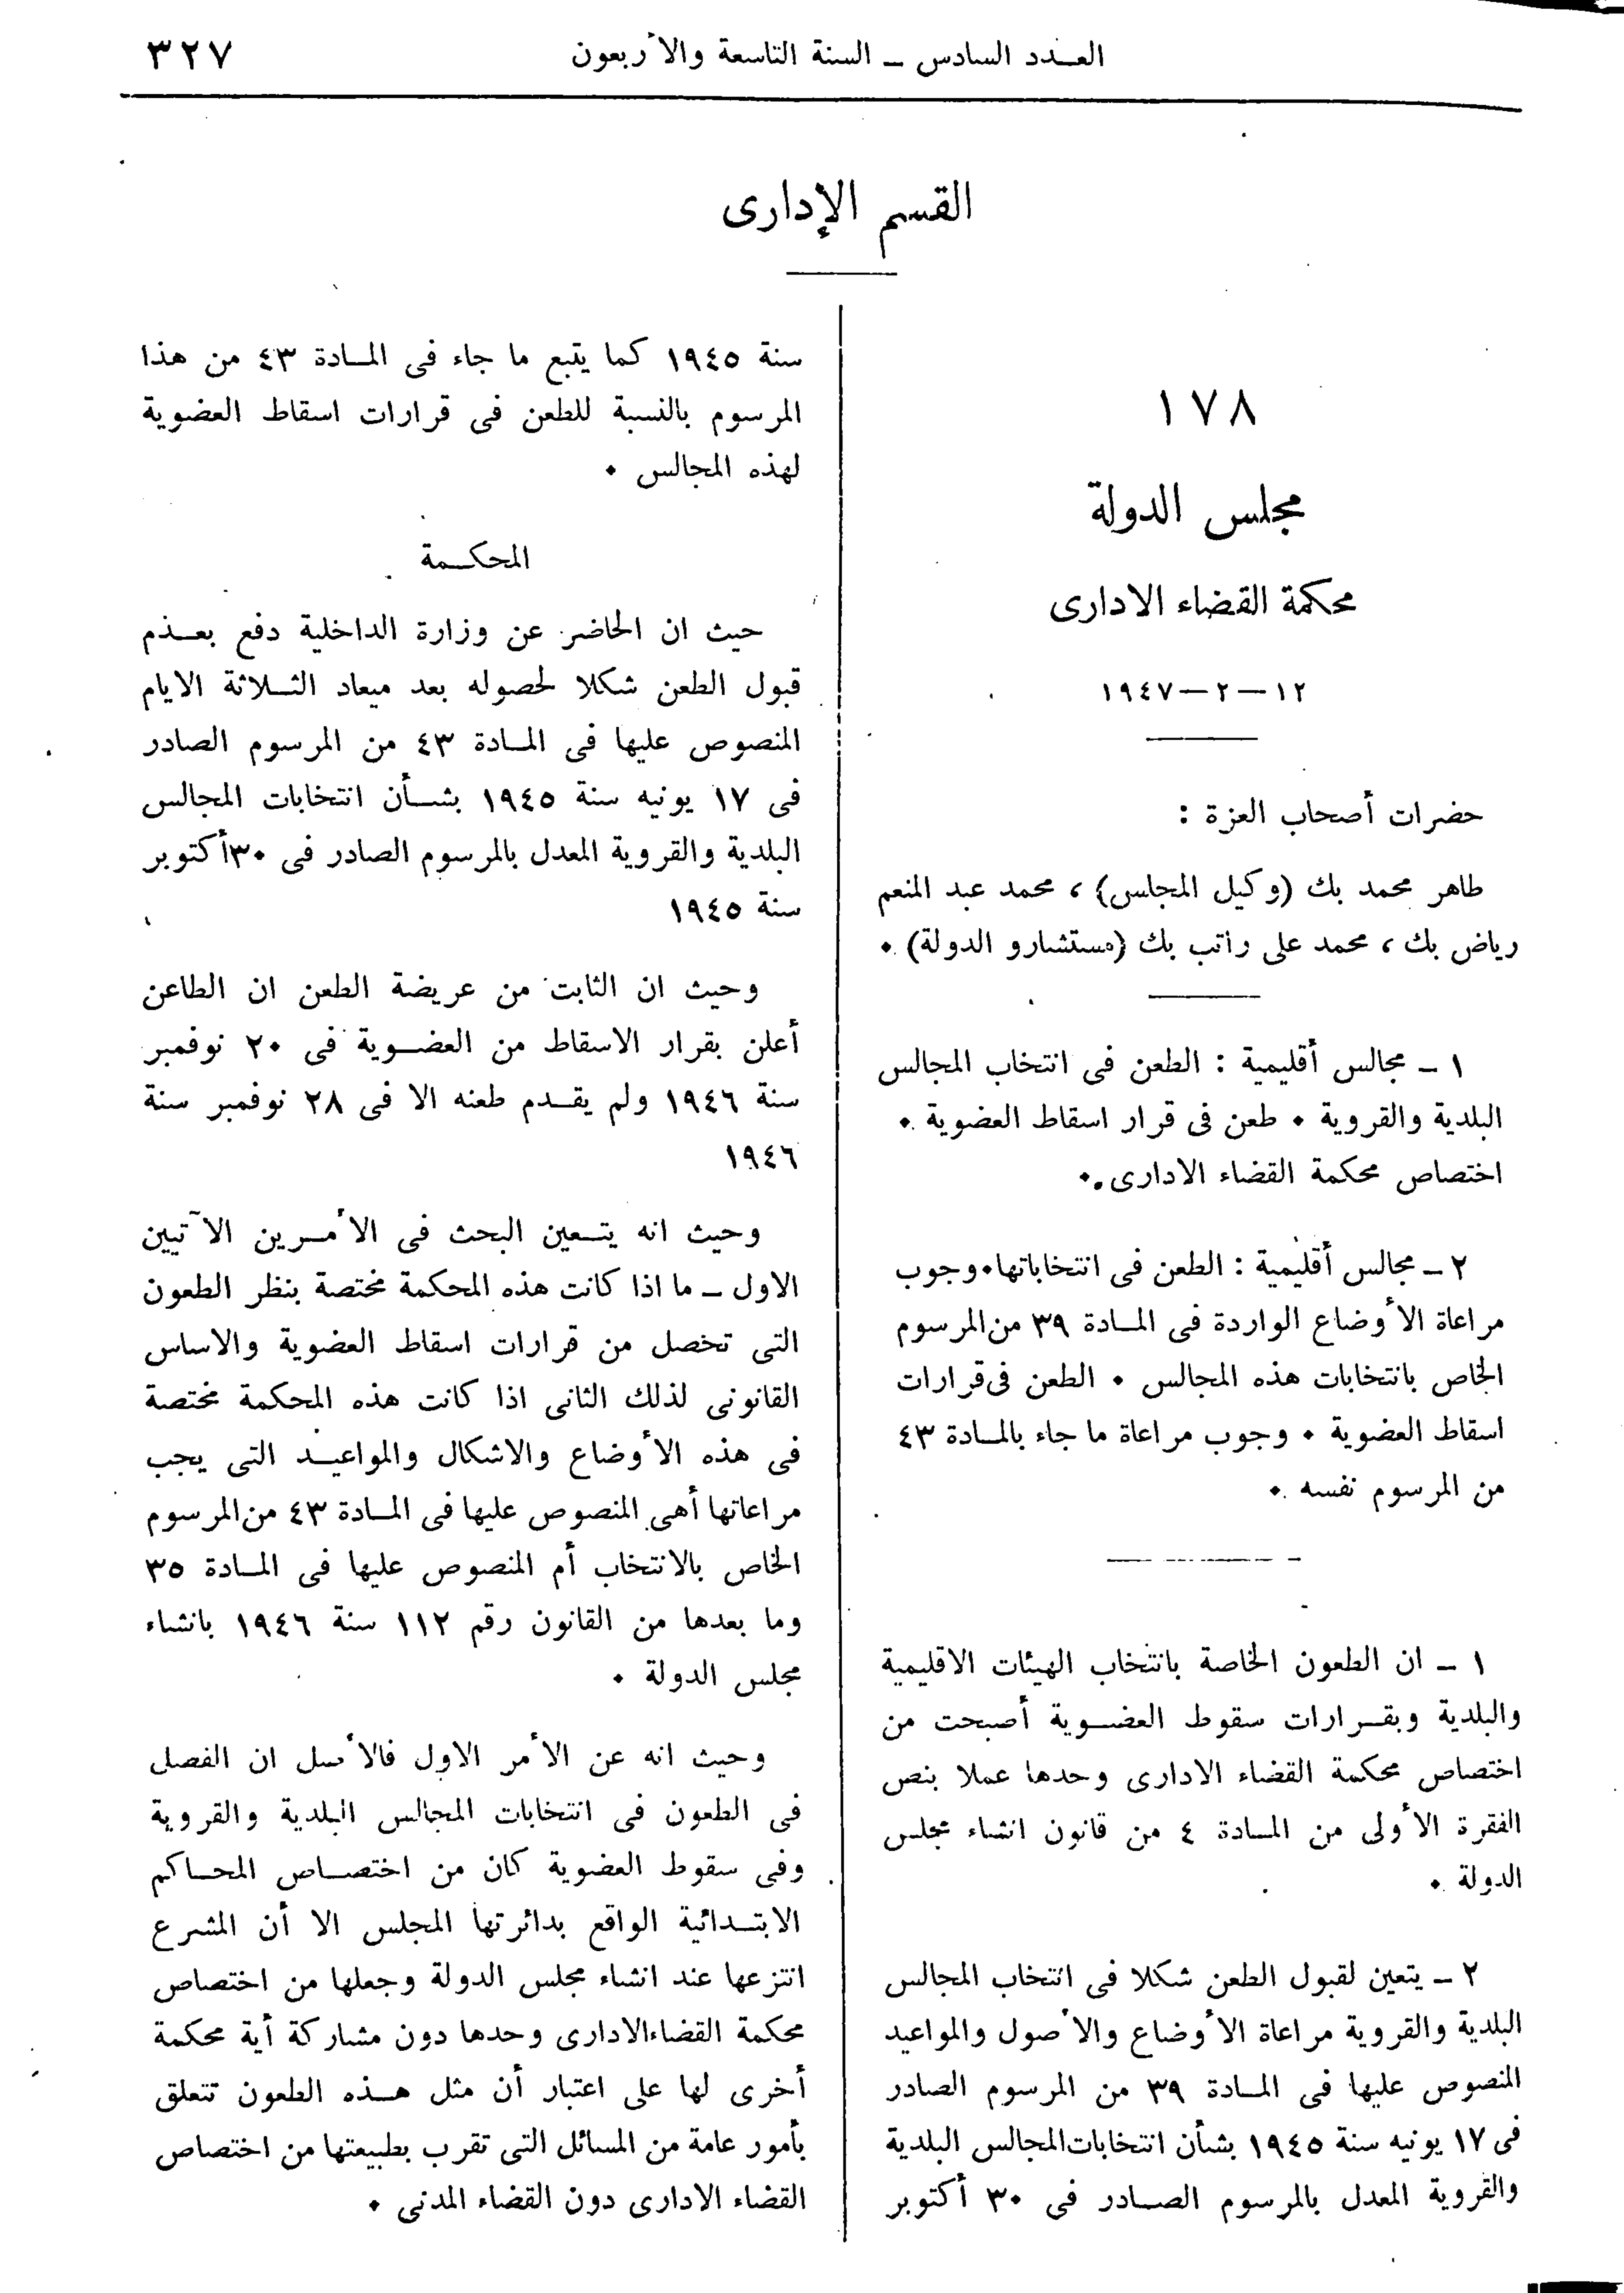 العدد السادس – السنة التاسعة والأربعون
٣٢٧
القسم الإدارى
١٧٨
مجلس الدولة
محكمة القضاء الادارى
١٢ – ٢ – ١٩٤٧
حضرات أصحاب العزة :
طاهر محمد بك (وكيل المجلس) ، محمد عبد المنعم
رياض بك ، محمد على راتب بك (مستشارو الدولة) ٠
١ – مجالس أقليمية : الطعن فى انتخاب المجالس
البلدية والقروية ٠ طعن فى قرار اسقاط العضوية ٠
اختصاص محكمة القضاء الادارى ٠
٢ – مجالس أقليمية : الطعن فى انتخاباتها ٠ وجوب
مراعاة الأوضاع الواردة فى المادة ٣٩ من المرسوم
الخاص بانتخابات هذه المجالس ٠ الطعن فى قرارات
اسقاط العضوية ٠ وجوب مراعاة ما جاء بالمادة ٤٣
من المرسوم نفسه ٠
١ – ان الطعون الخاصة بانتخاب الهيئات الاقليمية
والبلدية وبقرارات سقوط العضوية أصبحت من
اختصاص محكمة القضاء الادارى وحدها عملا بنص
الفقرة الأولى من المادة ٤ من قانون انشاء مجلس
الدولة ٠
٢ – يتعين لقبول الطعن شكلا فى انتخاب المجالس
البلدية والقروية مراعاة الأوضاع والأصول والمواعيد
المنصوص عليها فى المادة ٣٩ من المرسوم الصادر
فى ١٧ يونيه سنة ١٩٤٥ بشأن انتخابات المجالس البلدية
والقروية المعدل بالمرسوم الصادر فى ٣٠ أكتوبر
سنة ١٩٤٥ كما يتبع ما جاء فى المادة ٤٣ من هذا
المرسوم بالنسبة للطعن فى قرارات اسقاط العضوية
لهذه المجالس ٠
المحكمة
حيث ان الحاضر عن وزارة الداخلية دفع بعدم
قبول الطعن شكلا لحصوله بعد ميعاد الثلاثة الايام
المنصوص عليها فى المادة ٤٣ من المرسوم الصادر
فى ١٧ يونيه سنة ١٩٤٥ بشأن انتخابات المجالس
البلدية والقروية المعدل بالمرسوم الصادر فى ٣٠ أكتوبر
سنة ١٩٤٥
وحيث ان الثابت من عريضة الطعن ان الطاعن
أعلن بقرار الاسقاط من العضوية فى ٢٠ نوفمبر
سنة ١٩٤٦ ولم يقدم طعنه الا فى ٢٨ نوفمبر سنة
١٩٤٦
وحيث انه يتعين البحث فى الأمرين الآتيين
الاول – ما اذا كانت هذه المحكمة مختصة بنظر الطعون
التى تخصل من قرارات اسقاط العضوية والاساس
القانونى لذلك الثانى اذا كانت هذه المحكمة مختصة
فى هذه الأوضاع والاشكال والمواعيد التى يجب
مراعاتها أهى المنصوص عليها فى المادة ٤٣ من المرسوم
الخاص بالانتخاب أم المنصوص عليها فى المادة ٣٥
وما بعدها من القانون رقم ١١٢ سنة ١٩٤٦ بانشاء
مجلس الدولة ٠
وحيث انه عن الأمر الاول فالأصل ان الفصل
فى الطعون فى انتخابات المجالس البلدية والقروية
وفى سقوط العضوية كان من اختصاص المحاكم
الابتدائية الواقع بدائرتها المجلس الا أن المشرع
انتزعها عند انشاء مجلس الدولة وجعلها من اختصاص
محكمة القضاء الادارى وحدها دون مشاركة أية محكمة
أخرى لها على اعتبار أن مثل هذه الطعون تتعلق
بأمور عامة من المسائل التى تقرب بطبيعتها من اختصاص
القضاء الادارى دون القضاء المدنى ٠